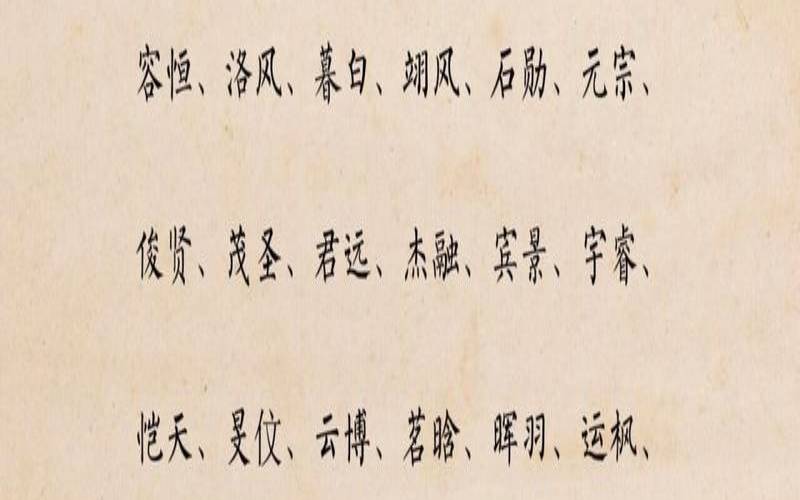 容恒、洛风、暮白、翊风、石勋、元宗、
俊贤、茂圣、君远、杰融、宾景、宇睿、
恺天、旻仪、云博、茗晗、晖羽、运枫、